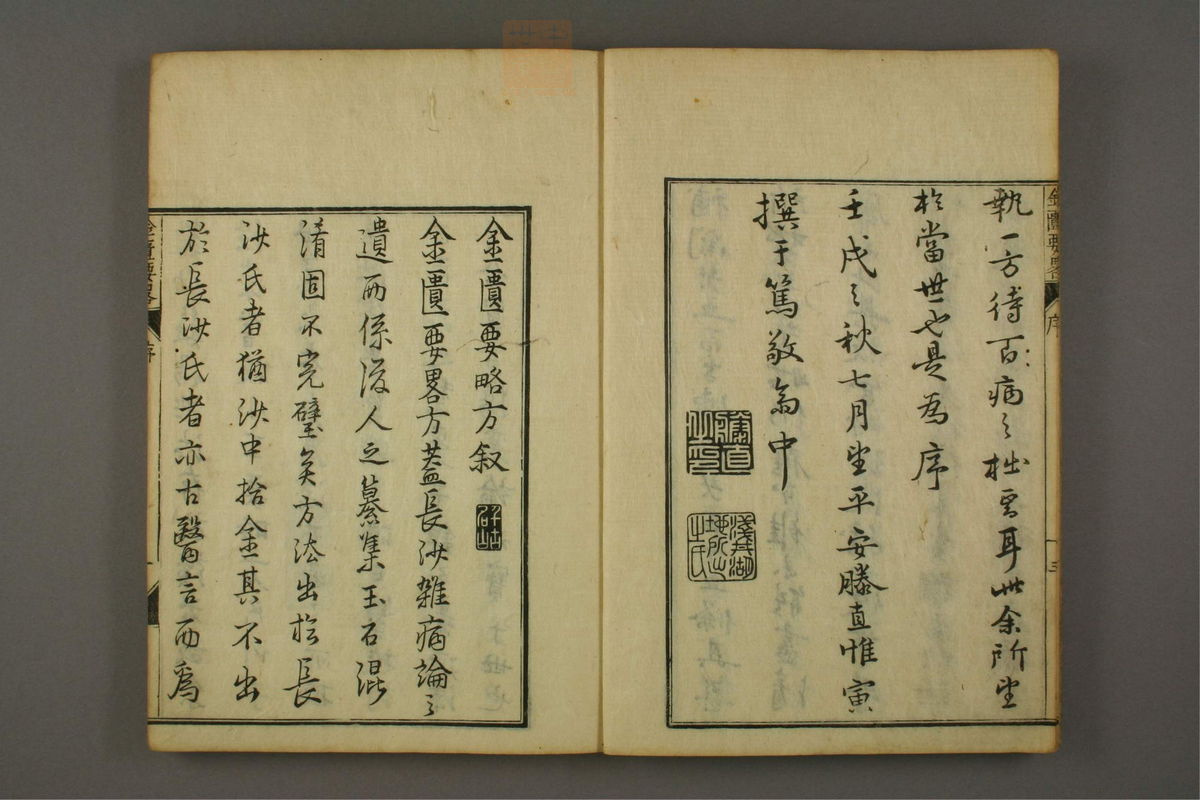 執一方待百病之拙云耳此余所望
於當世也是為序
壬戌之秋七月望平安滕直惟寅
撰于篤敬斎中
金匱要畧
序
三
金匱要略方叙
金匱要畧方蓋長沙雜病論之
遺而係後人之纂集玉石混
淆固不完璧矣方法出於長
沙氏者猶沙中拾金其不出
於長沙氏者亦古醫言而爲
金匱要畧
序
一